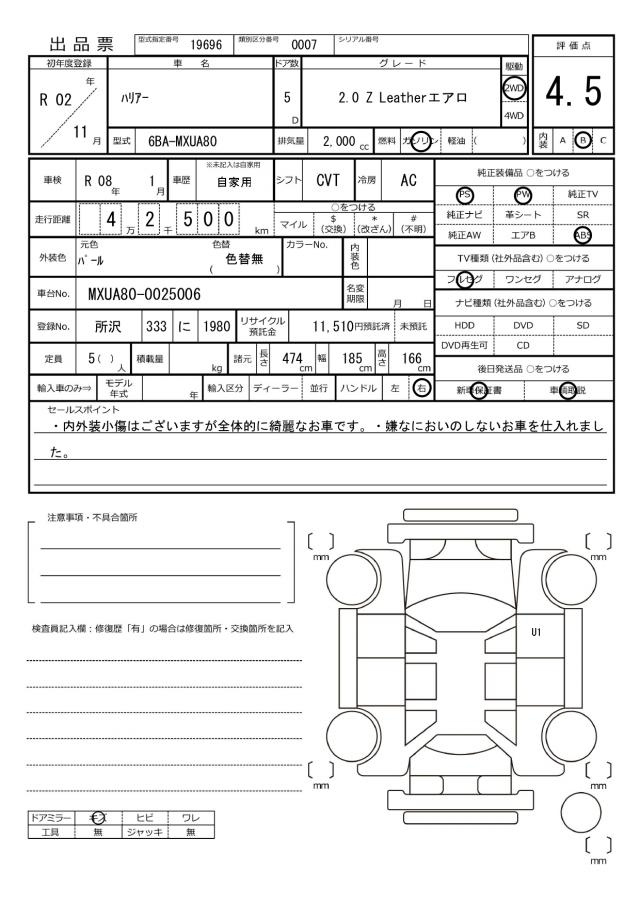 出品票 型式指定番号 19696 類別区分番号 0007 シリアル番号
評価点
4.5
初年度登録 車名 ドア数 グレード 駆動
R 02 年 11 月 ハリアー 5 D 2.0 Z Leatherエアロ 2WD 4WD
型式 6BA-MXUA80 排気量 2,000 cc 燃料 ガソリン 軽油 ( )
内装 A B C
車検 R 08 年 1 月 車歴 ※未記入は自家用 自家用 シフト CVT 冷房 AC
走行距離 4 万 2 千 5 0 0 km
○をつける
マイル $ (交換) * (改ざん) # (不明)
外装色 元色 パール 色替 ( 色替無 ) カラーNo. 内装色
車台No. MXUA80-0025006 名変期限 月 日
登録No. 所沢 333 に 1980 リサイクル預託金 11,510円預託済 未預託
定員 5( ) 人 積載量 kg 諸元 長さ 474 cm 幅 185 cm 高さ 166 cm
輸入車のみ⇒ モデル年式 年 輸入区分 ディーラー 並行 ハンドル 左 右
純正装備品 ○をつける
PS PW 純正TV
純正ナビ 革シート SR
純正AW エアB ABS
TV種類 (社外品含む) ○をつける
フルセグ ワンセグ アナログ
ナビ種類 (社外品含む) ○をつける
HDD DVD SD
DVD再生可 CD
後日発送品 ○をつける
新車保証書 車輌取説
セールスポイント
・内外装小傷はございますが全体的に綺麗なお車です。・嫌なにおいのしないお車を仕入れまし
た。
注意事項・不具合箇所
検査員記入欄：修復歴「有」の場合は修復箇所・交換箇所を記入
〔 〕 mm
〔 〕 mm
U1
〔 〕 mm
〔 〕 mm
〔 〕 mm
ドアミラー キズ ヒビ ワレ
工具 無 ジャッキ 無